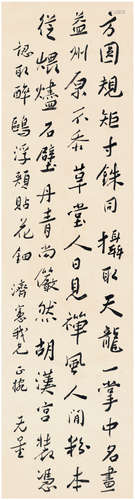 方圓規矩寸銖同攝取天龍一掌中名畫
益州原不忝草堂人日見禪風人間粉本
從煨燼石壁丹青尚儼然胡漢宮裝憑
認取醉浮頰貼花鈿 濟憲我兄正腕 无量